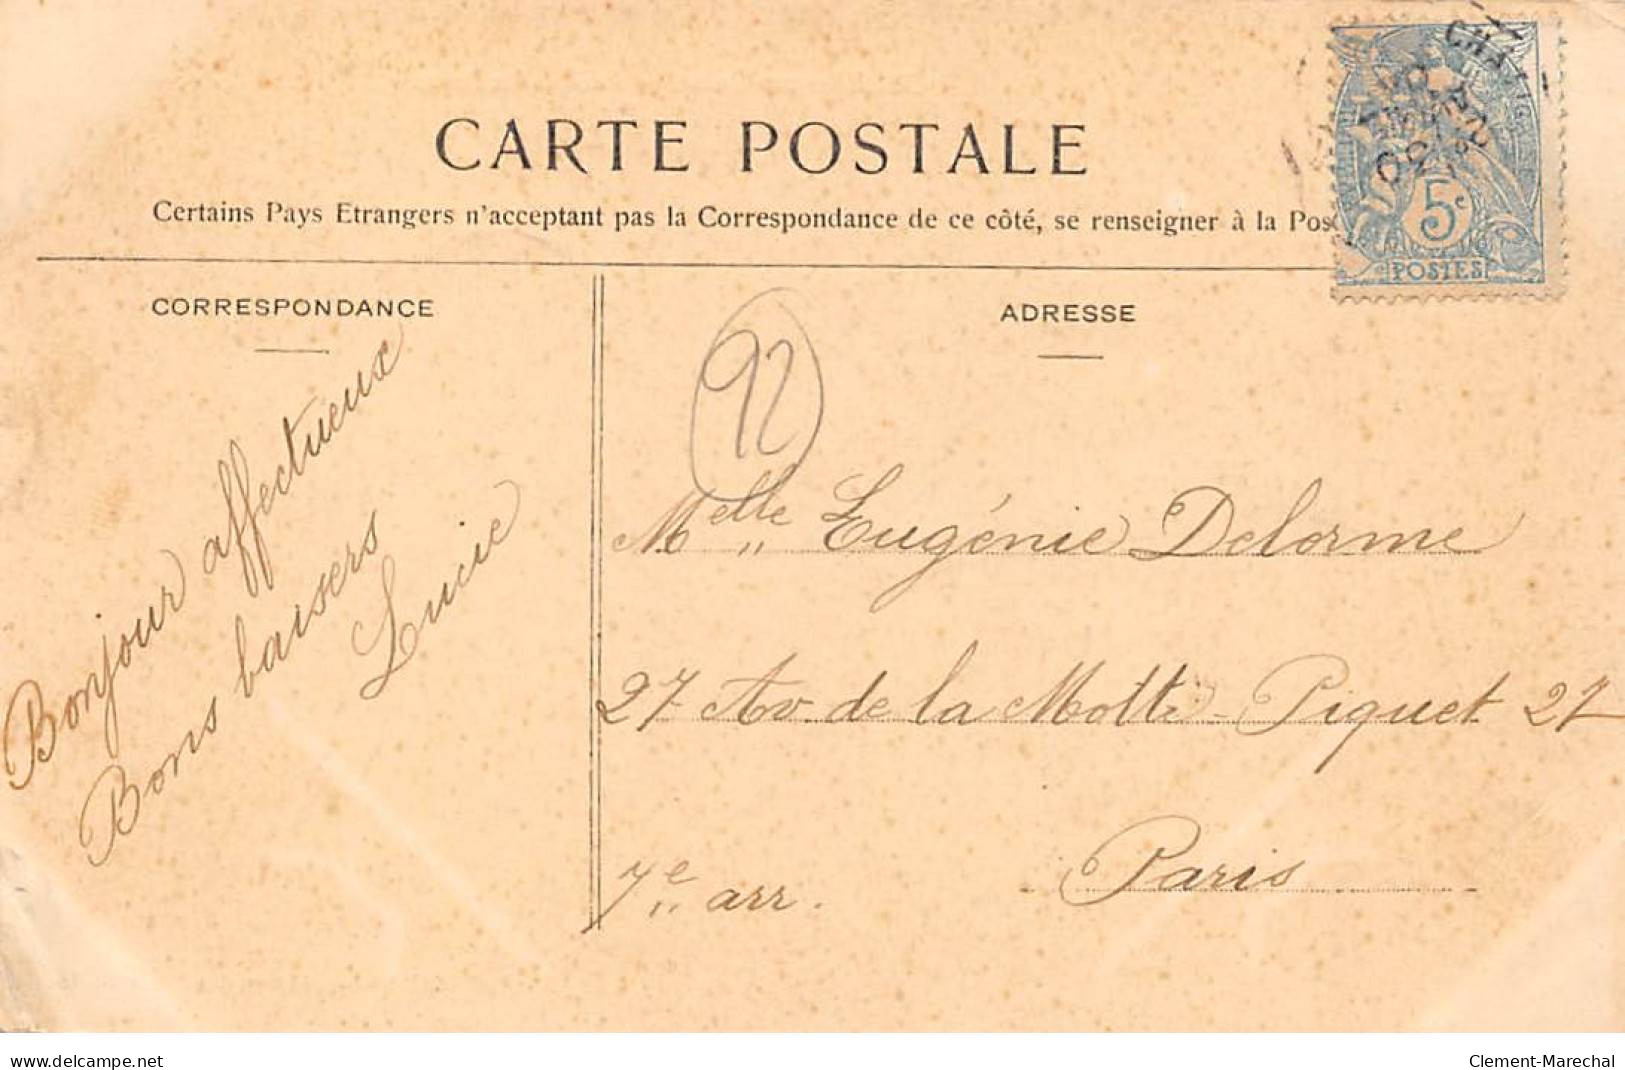 CARTE POSTALE
Certains Pays Etrangers n'acceptant pas la Correspondance de ce côté, se renseigner à la Pos
CORRESPONDANCE
ADRESSE
5c
POSTES
92
Bonjour affectueux
Bons baisers
Lucie
Melle Eugénie Delorme
27 Av. de la Motte-Piquet 27
Paris
7e arr.
www.delcampe.net
Clement-Marechal